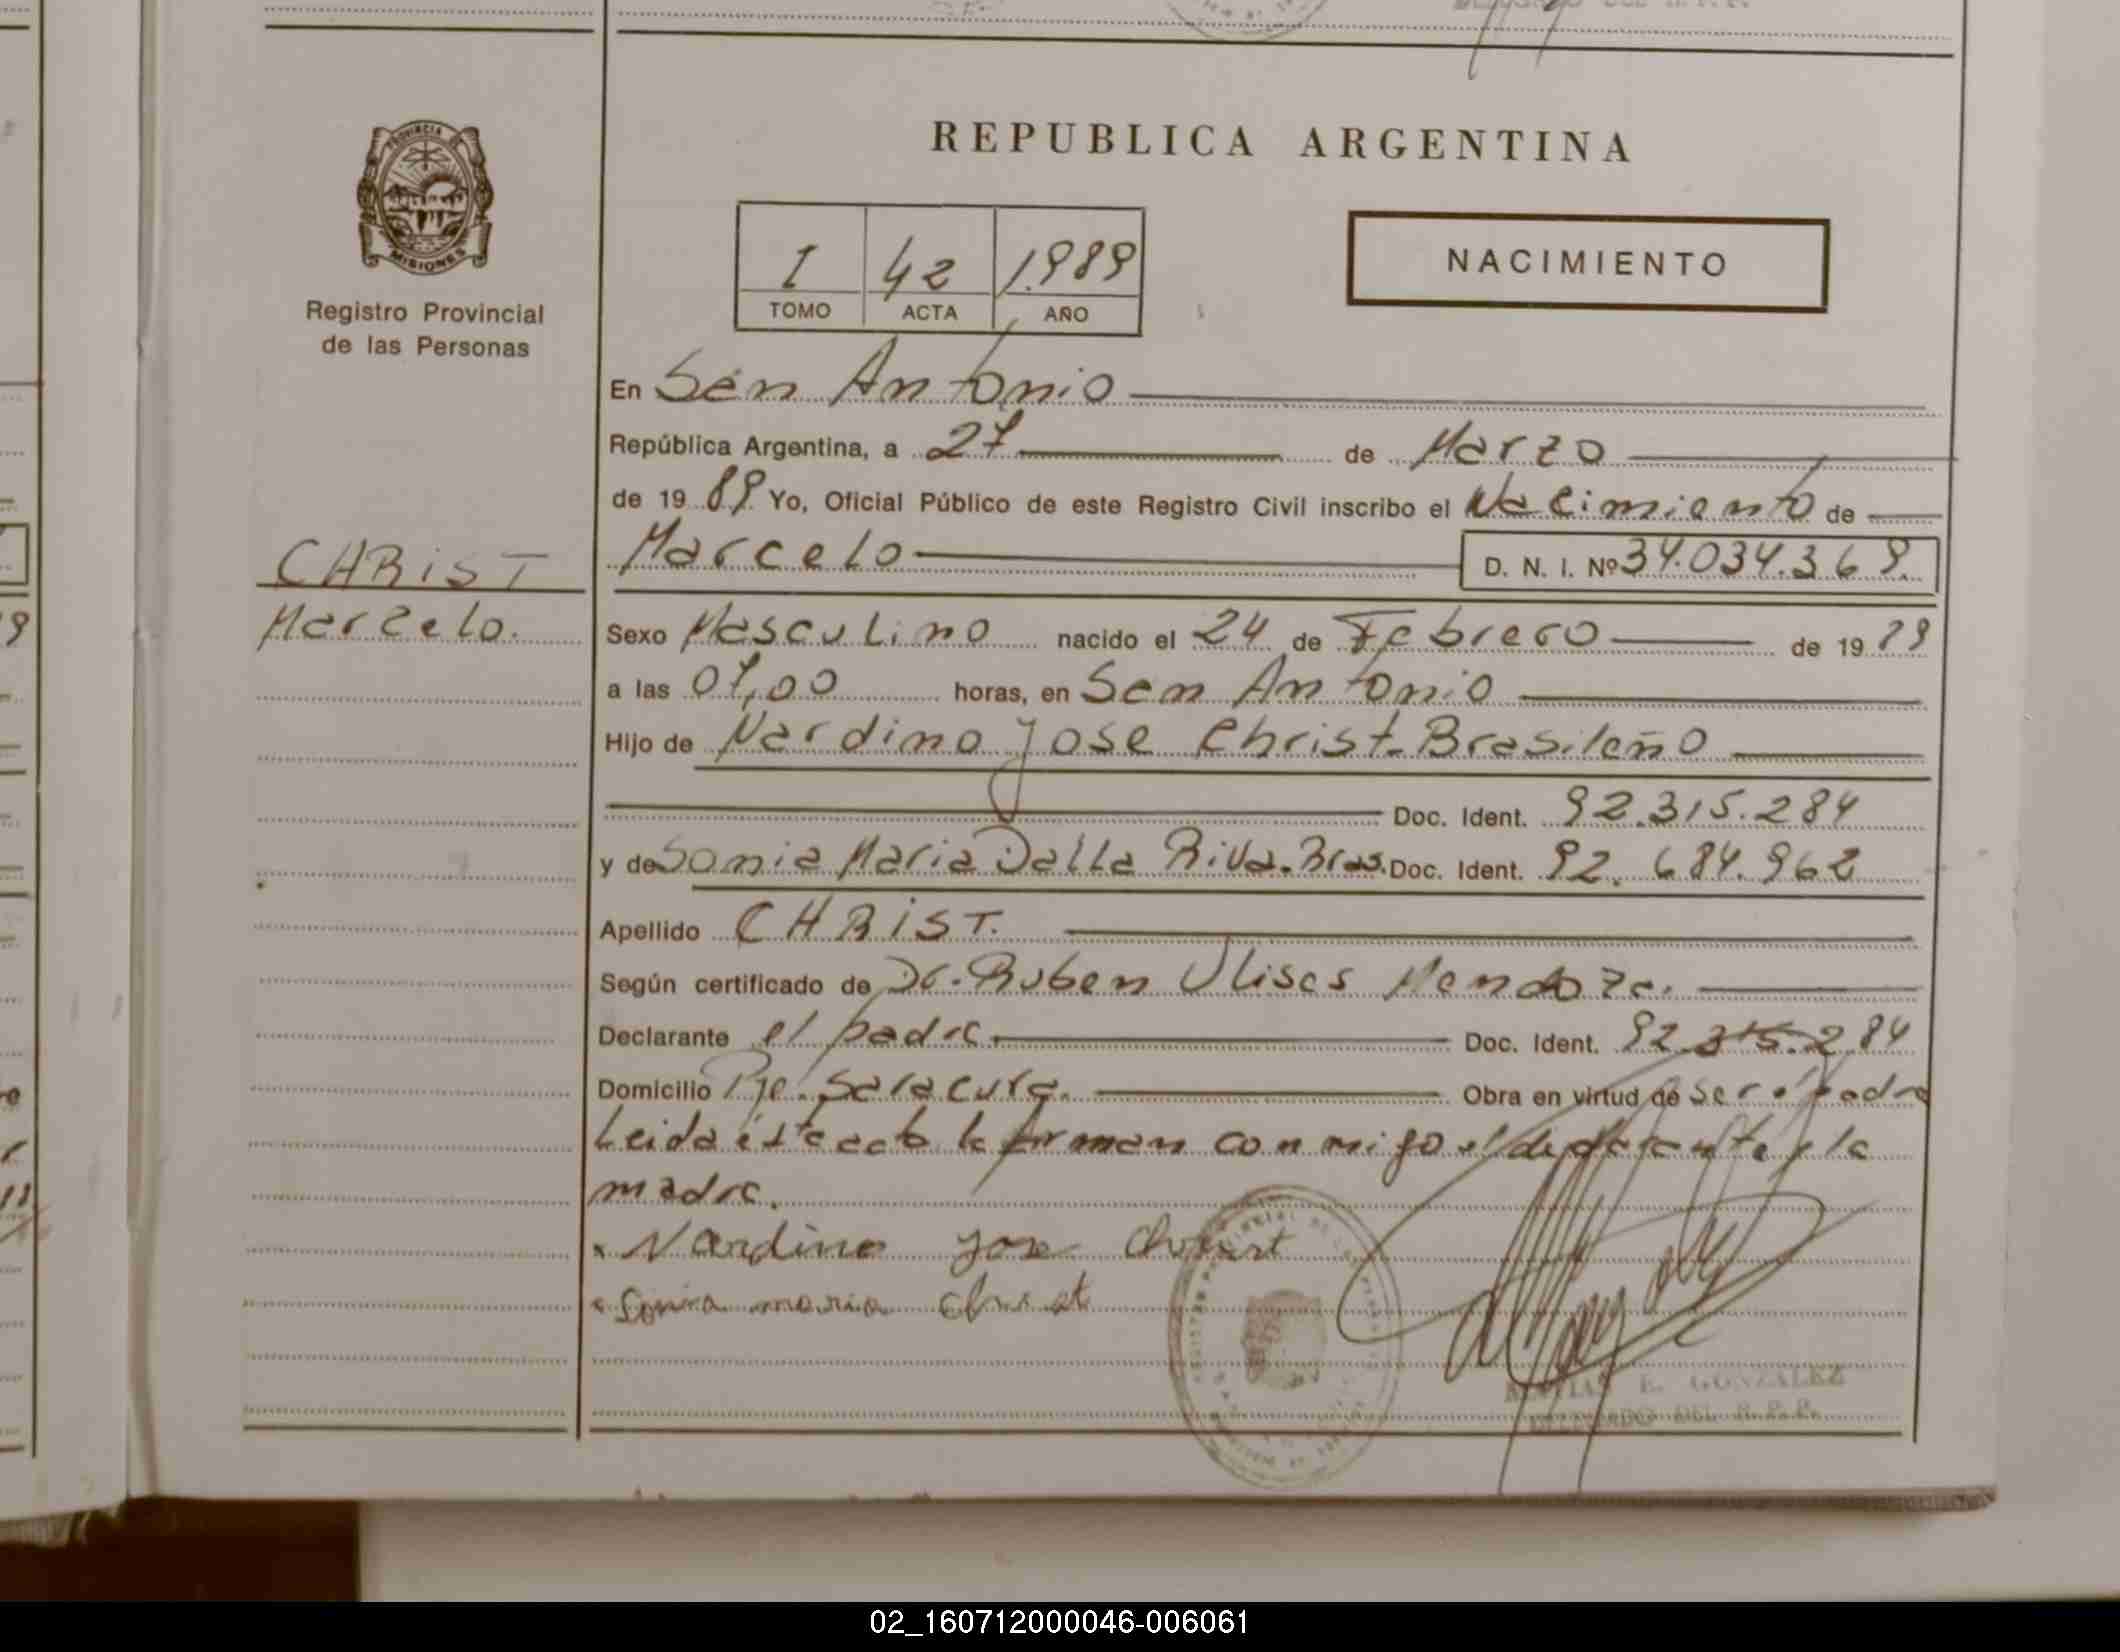 PROVINCIA DE
MISIONES
Registro Provincial
de las Personas
CHRIST
Marcelo.
REPUBLICA ARGENTINA
I 42 1.989
TOMO ACTA AÑO
NACIMIENTO
En San Antonio
República Argentina, a 27 de Marzo
de 1989 Yo, Oficial Público de este Registro Civil inscribo el Nacimiento de
Marcelo D. N. I. Nº 34.034.369.
Sexo Masculino nacido el 24 de Febrero de 1989
a las 07,00 horas, en San Antonio
Hijo de Nardino Jose Christ. Brasileño
Doc. Ident. 92.315.284
y de Sonia Maria Dalla Riva. Bras. Doc. Ident. 92.684.962
Apellido CHRIST.
Según certificado de Dr. Ruben Ulises Mendoza.
Declarante el padre Doc. Ident. 92.315.284
Domicilio Pje. Saracura. Obra en virtud de ser el padre
Leida ésta acta la firman conmigo el declarante y la
madre.
x Nardino Jose Christ
x Sonia maria christ
MATIAS E. GONZALEZ
DELEGADO DEL R.P.P.
02_160712000046-006061